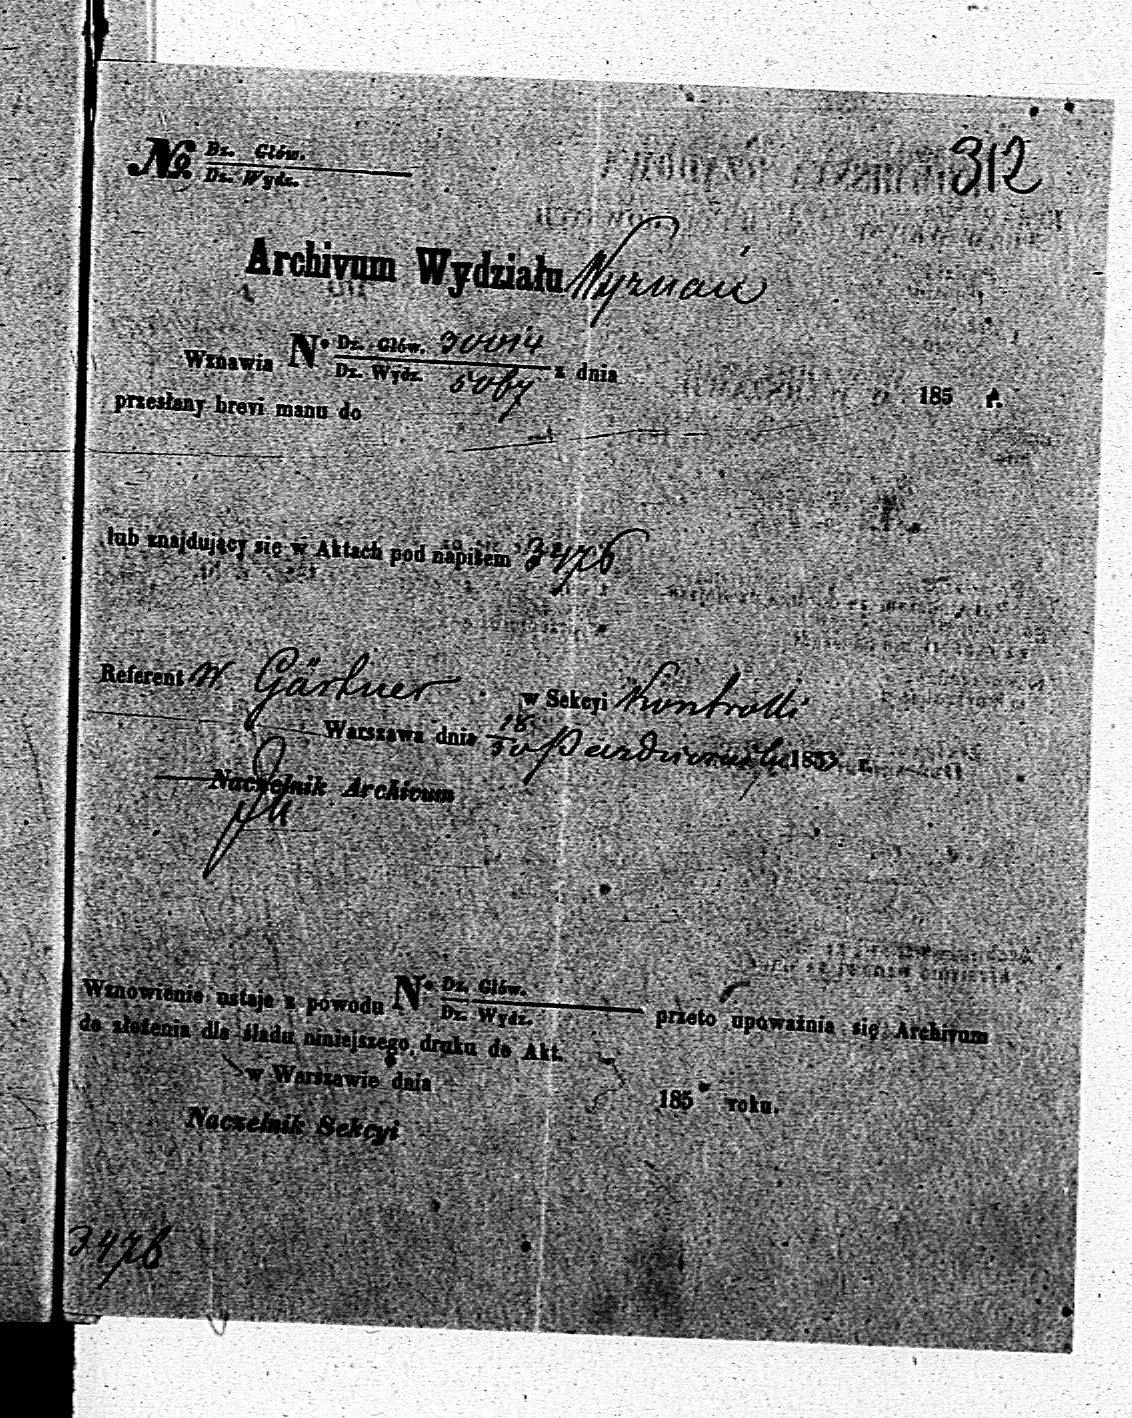 312
№ Dz. Głów.
Dz. Wydz.
Archivum Wydziału Wyznań
Wznawia N° Dz. Głów. 30014
Dz. Wydz. z dnia 185 r.
przesłany brevi manu do
lub znajdujący się w Aktach pod napisem 3476
Referent W Gärtner w Sekcyi Kontrolli
Warszawa dnia 18/30 Października 1853 r.
Naczelnik Archivum
Wznowienie ustaje z powodu N° Dz. Głów.
Dz. Wydz. przeto upoważnia się Archivum
do złożenia dla śladu niniejszego druku do Akt.
w Warszawie dnia 185 roku.
Naczelnik Sekcyi
3476